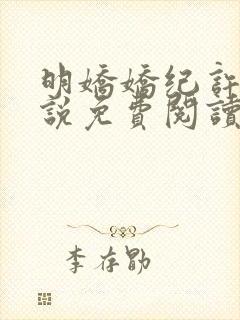 明嬌嬌纪許
說免費閱讀
李存勖